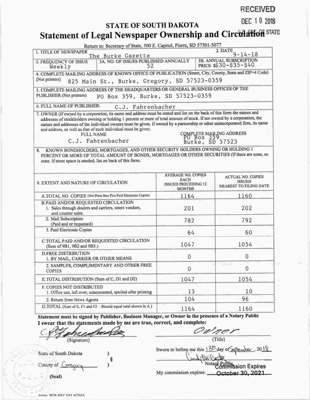 RECEIVED
DEC 10 2018
STATE OF SOUTH DAKOTA
Statement of Legal Newspaper Ownership and Circulation
Return to: Secretary of State, 500 E. Capitol, Pierre, SD 57501-5077
1. TITLE OF NEWSPAPER
The Burke Gazette
2. DATE
9-14-18
3. FREQUENCY OF ISSUE
Weekly
3A. NO. OF ISSUES PUBLISHED ANNUALLY
52
3B. ANNUAL SUBSCRIPTION
PRICE $30-$35-$40
4. COMPLETE MAILING ADDRESS OF KNOWN OFFICE OF PUBLICATION (Street, City, County, State and ZIP+4 Code)
(Not printers) 825 Main St., Burke, Gregory, SD 57523-0359
5. COMPLETE MAILING ADDRESS OF THE HEADQUARTERS OR GENERAL BUSINESS OFFICES OF THE
PUBLISHER (Not printers) PO Box 359, Burke, SD 57523-0359
6. FULL NAME OF PUBLISHER:
C.J. Fahrenbacher
7. OWNER (If owned by a corporation, its name and address must be stated and also immediately thereafter the names and
addresses of stockholders owning or holding 1 percent or more of total amount of stock. If not owned by a corporation, the
names and addresses of the individual owners must be given. If owned by a partnership or other unincorporated firm, its name
and address, as well as that of each individual must be given.
FULL NAME
COMPLETE MAILING ADDRESS
C.J. Fahrenbacher
PO Box 359
Burke, SD 57523
8. KNOWN BONDHOLDERS, MORTGAGEES, AND OTHER SECURITY HOLDERS OWNING OR HOLDING 1
PERCENT OR MORE OF TOTAL AMOUNT OF BONDS, MORTGAGES OR OTHER SECURITIES (If there are none, so
state. If more space is needed, list on back of this form.
9. EXTENT AND NATURE OF CIRCULATION
AVERAGE NO. COPIES
EACH
ISSUED PRECEDING 12
MONTHS
ACTUAL NO. COPIES
ISSUED
NEAREST TO FILING DATE
A. TOTAL NO. COPIES (Net Press Run Plus Paid Electronic Copies)
1164
1160
B. PAID AND/OR REQUESTED CIRCULATION
1. Sales through dealers and carriers, street vendors,
and counter sales.
201
202
2. Mail Subscription
(Paid and or requested)
782
792
3. Paid Electronic Copies
64
60
C. TOTAL PAID AND/OR REQUESTED CIRCULATION
(Sum of 9B1, 9B2 and 9B3.)
1047
1054
D. FREE DISTRIBUTION
1. BY MAIL, CARRIER OR OTHER MEANS
0
0
2. SAMPLES, COMPLIMENTARY AND OTHER FREE
COPIES
0
0
E. TOTAL DISTRIBUTION (Sum of C, D1 and D2)
1047
1054
F. COPIES NOT DISTRIBUTED
1. Office use, left over, unaccounted, spoiled after printing
13
10
2. Return from News Agents
104
96
G. TOTAL (Sum of E, F1 and F2 - Should equal total shown in A.)
1164
1160
Statement must be signed by Publisher, Business Manager, or Owner in the presence of a Notary Public
I swear that the statements made by me are true, correct, and complete:
Owner
(Signature)
(Title)
State of South Dakota )
Sworn to before me this day of September, 2018
§
County of Gregory )
Notary Public
(Seal)
My commission expires: Commission Expires
October 30, 2021